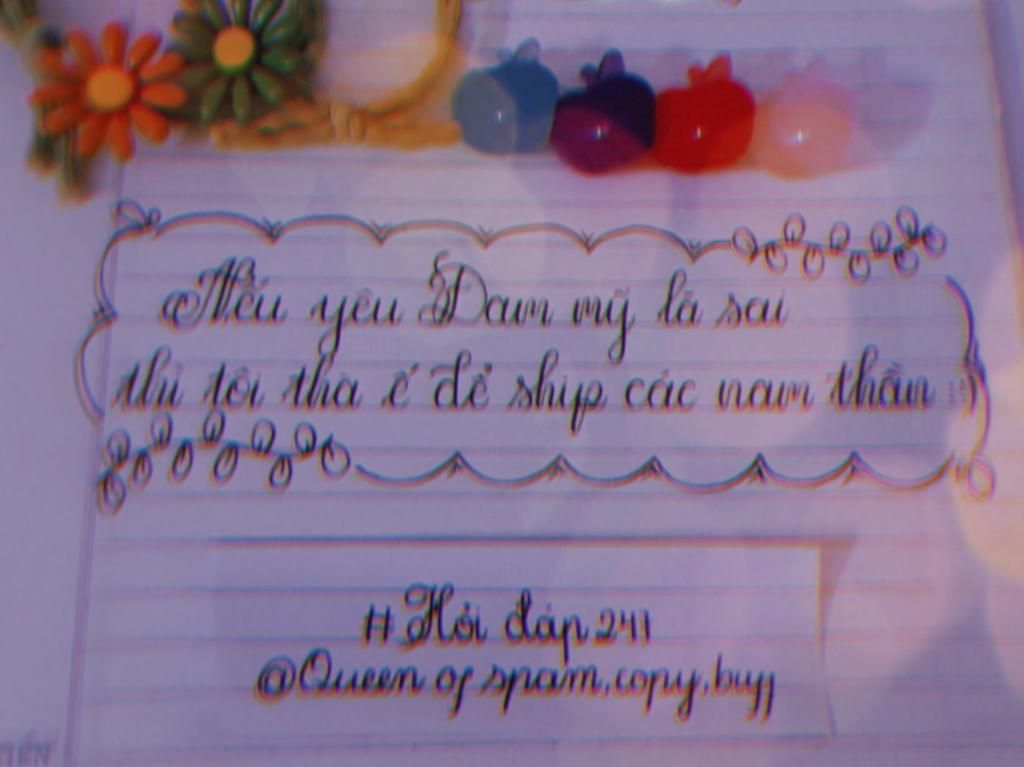 Nếu yêu Đam mỹ là sai
thì tôi thà ế để ship các nam thần
#Hỏi đáp 241
@Queen of spam,copy,buff